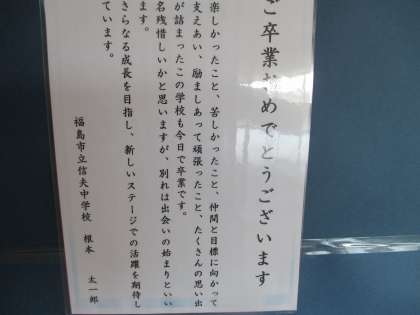 ご卒業おめでとうございます
楽しかったこと、苦しかったこと、仲間と目標に向かって
支えあい、励ましあって頑張ったこと、たくさんの思い出
が詰まったこの学校も今日で卒業です。
名残惜しいかと思いますが、別れは出会いの始まりとい
ます。
さらなる成長を目指し、新しいステージでの活躍を期待し
ています。
福島市立信夫中学校 根本 太一郎